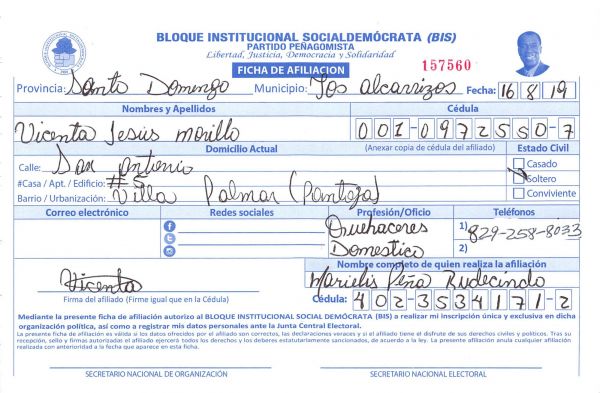 BLOQUE INSTITUCIONAL SOCIALDEMÓCRATA (BIS)
PARTIDO PEÑAGOMISTA
Libertad, Justicia, Democracia y Solidaridad
157560
FICHA DE AFILIACION
Provincia: Santo Domingo Municipio: Los alcarrizos Fecha: 16 8 19
Nombres y Apellidos Cédula
Vicenta Jesús morillo 001-0972550-7
Domicilio Actual (Anexar copia de cédula del afiliado) Estado Civil
Calle: San Antonio Casado
#Casa / Apt. / Edificio: #5 Soltero
Barrio / Urbanización: Villa Palmar (Pantoja) Conviviente
Correo electrónico Redes sociales Profesión/Oficio Teléfonos
Quehaceres 1) 829-258-8033
Domestico 2)
Nombre completo de quien realiza la afiliación
Vicenta Marielis Peña Rudecindo
Firma del afiliado (Firme igual que en la Cédula) Cédula: 402-3534171-2
Mediante la presente ficha de afiliación autorizo al BLOQUE INSTITUCIONAL SOCIAL DEMÓCRATA (BIS) a realizar mi inscripción única y exclusiva en dicha
organización política, así como a registrar mis datos personales ante la Junta Central Electoral.
La presente ficha de afiliación es válida si los datos ofrecidos por el afiliado son correctos, las declaraciones veraces y si el afiliado tiene el disfrute de sus derechos civiles y políticos. Tras su
recepción, sello y firmas autorizadas el afiliado ejercerá todos los derechos y los deberes estatutariamente sancionados, de acuerdo a la ley. La presente afiliación anula cualquier afiliación
realizada con anterioridad a la fecha que aparece en esta ficha.
SECRETARIO NACIONAL DE ORGANIZACIÓN SECRETARIO NACIONAL ELECTORAL